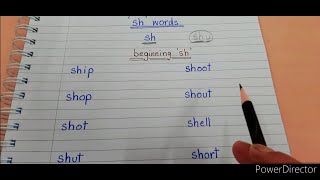 'sh' words
sh sh
beginning 'sh'
ship shoot
shop shout
shot shell
shut short
PowerDirector